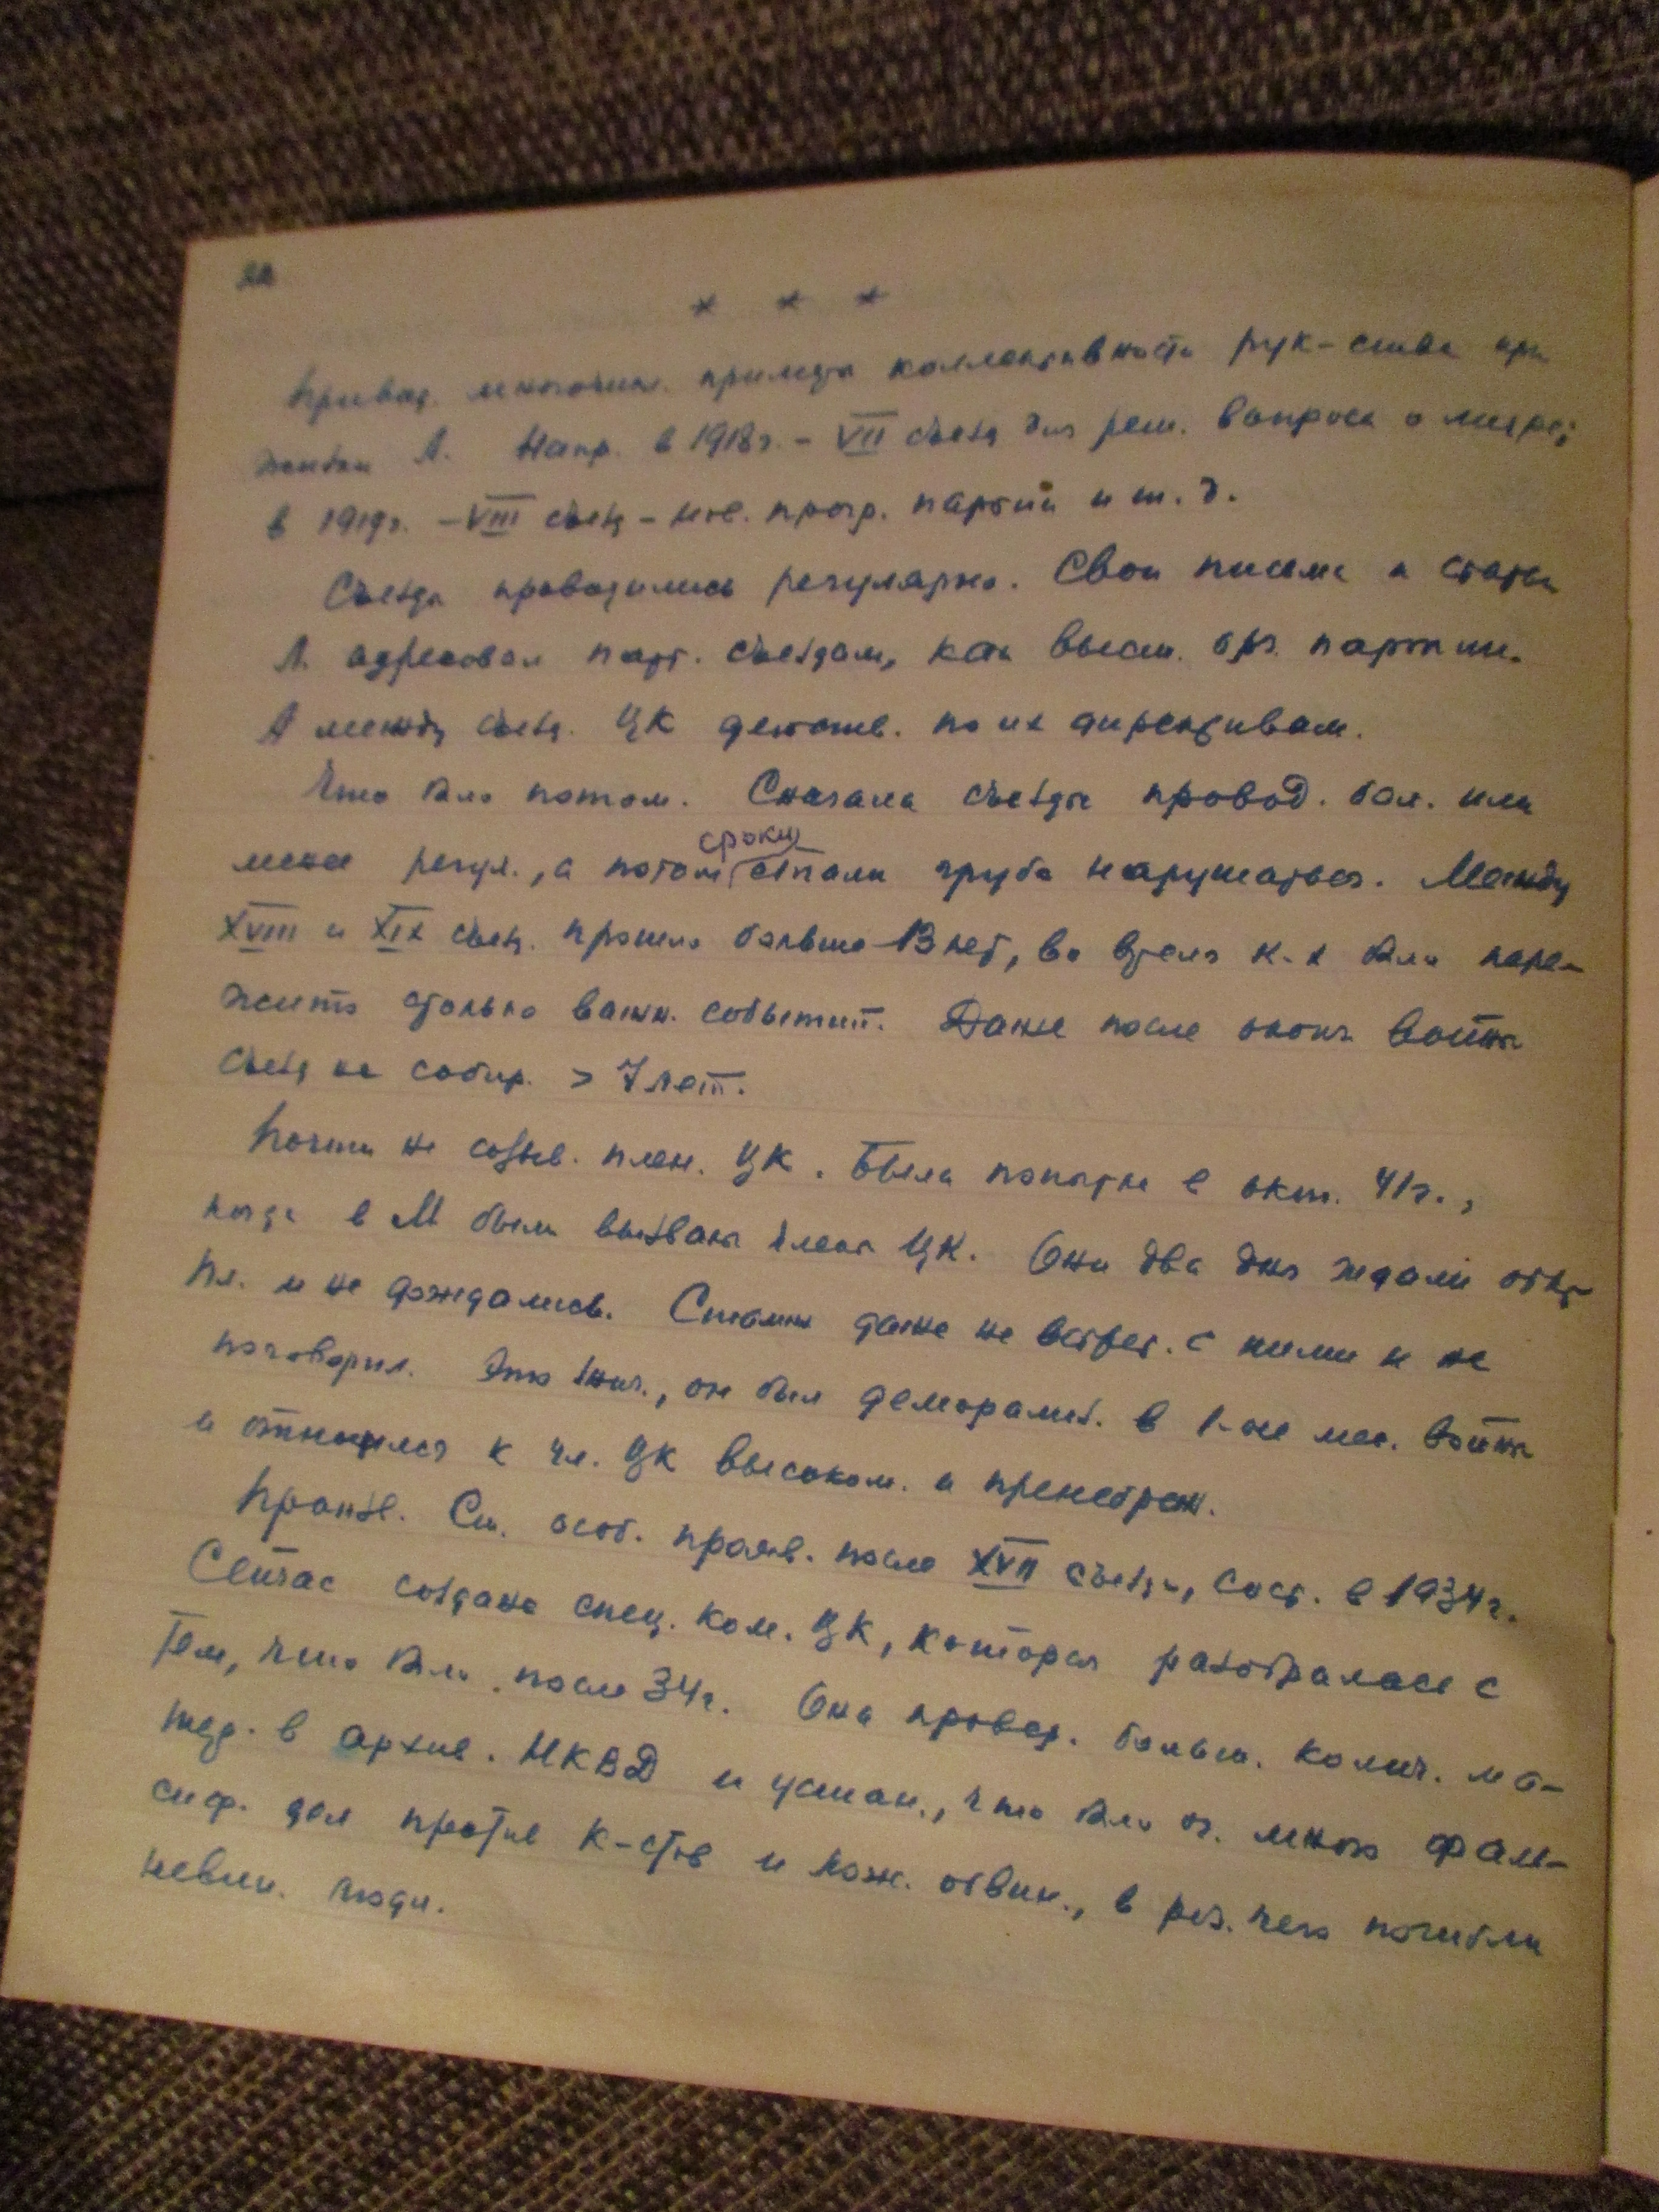 22
* * *
Привод. многочисл. примеры коллективности рук-ства при
жизни Л. Напр. в 1918г. – VII съезд для реш. вопроса о мире;
в 1919г. – VIII съезд – нов. прогр. партии и т. д.
Съезды проводились регулярно. Свои письма и статьи
Л. адресовал парт. съездам, как высш. орг. партии.
А между съезд. ЦК действ. по их директивам.
Что было потом. Сначала съезды провод. бол. или
сроки
менее регул., а потом стали грубо нарушаться. Между
XVIII и XIX съезд. прошло больше 13 лет, во время к-х были пере-
жито столько важн. событий. Даже после оконч. войны
съезд не собир. > 7 лет.
Почти не созыв. плен. ЦК. Была попытка в окт. 41г.,
когда в М были вызваны члены ЦК. Они два дня ждали откр.
пл. и не дождались. Сталин даже не встрет. с ними и не
поговорил. Это знач., он был деморализ. в 1-ые мес. войны
и относился к чл. ЦК высоком. и пренебреж.
Произв. Ст. особ. прояв. после XVII съезда, сост. в 1934г.
Сейчас создана спец. ком. ЦК, которая разобралась с
тем, что было после 34г. Она провер. больш. колич. ма-
тер. в архив. НКВД и устан., что было оч. много фаль-
сиф. дел против к-стов и лож. обвин., в рез. чего погибли
невин. люди.